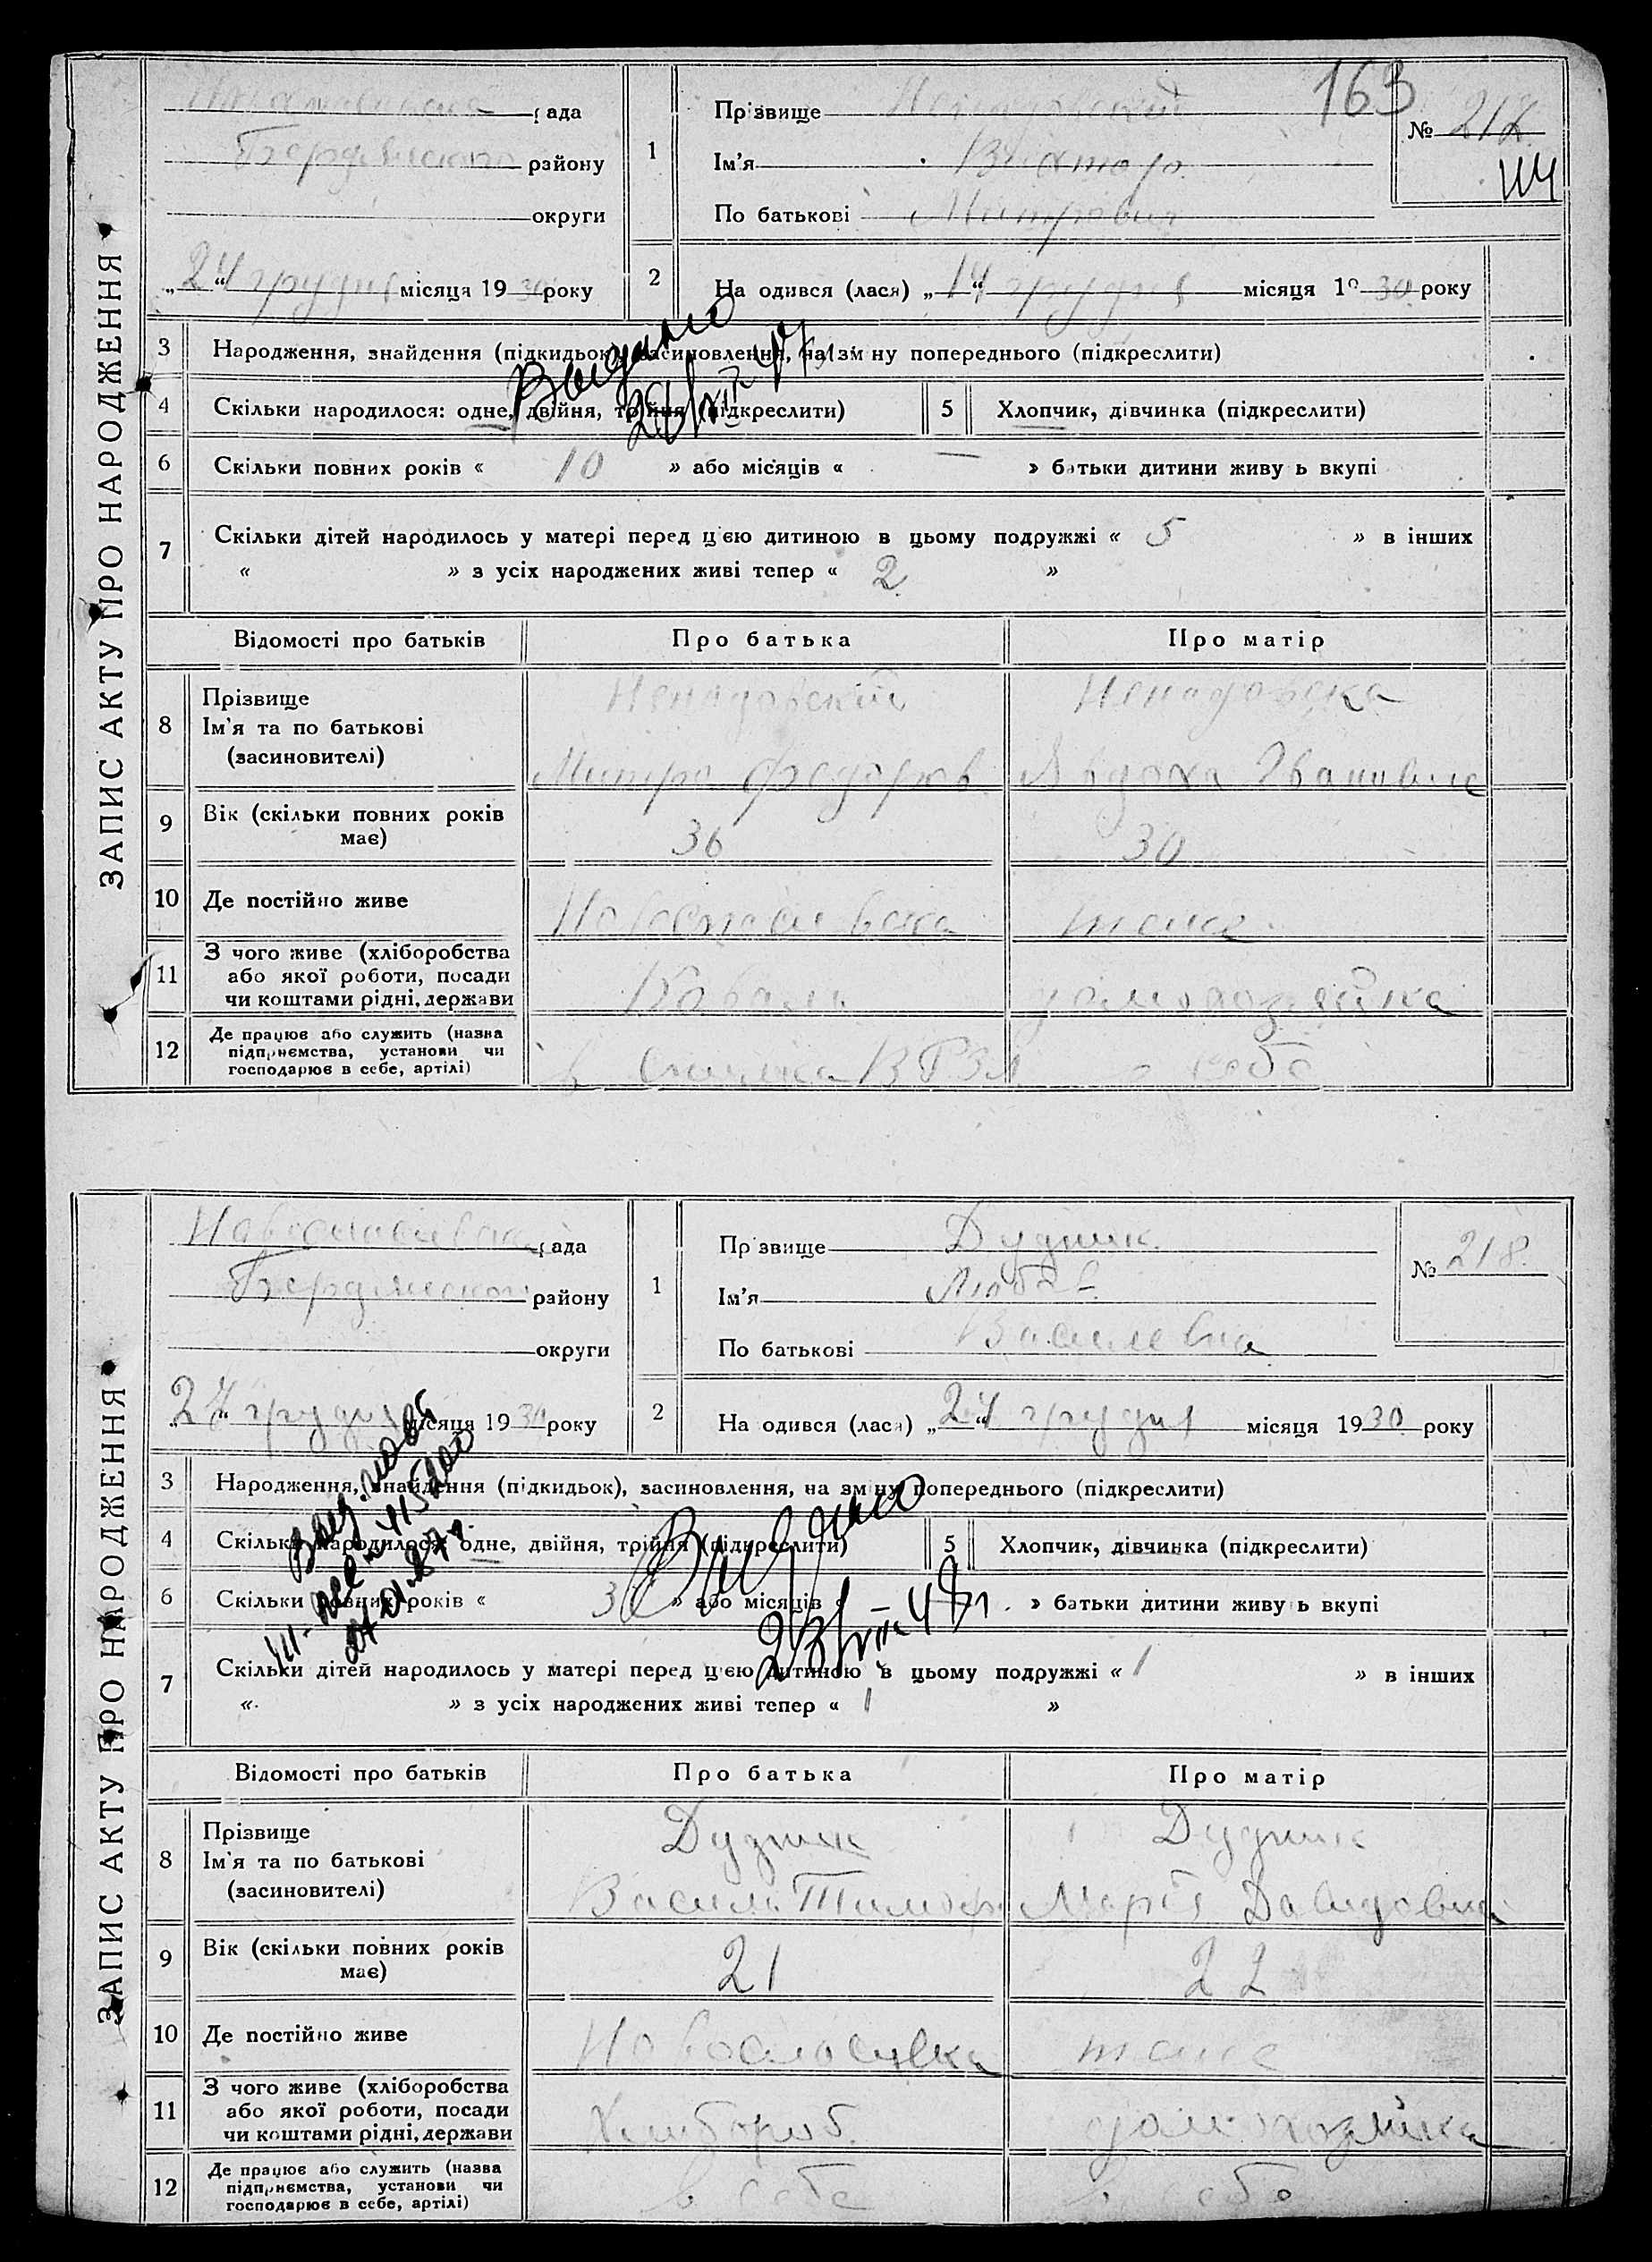 163
ЗАПИС АКТУ ПРО НАРОДЖЕННЯ
рада
Бердянського району
округи
„24“ грудня місяця 1930 року
1
Прізвище
Ім'я Віктор
По батькові Митрович
№ 217
2
На одився (лася) „14“ грудня місяця 1930 року
3 Народження, знайдення (підкидьок), засиновлення, на зм ну попереднього (підкреслити)
Выдано
4 Скільки народилося: одне, двійня, трійня (підкреслити)
5 Хлопчик, дівчинка (підкреслити)
6 Скільки повних років « 10 » або місяців « — » батьки дитини живу ь вкупі
7 Скільки дітей народилось у матері перед цією дитиною в цьому подружжі « 5 » в інших
« » з усіх народжених живі тепер « 2 »
Відомості про батьків Про батька Про матір
8 Прізвище
Ім'я та по батькові
(засиновителі)
Митро Федоров Явдоха Івановна
9 Вік (скільки повних років
має)
36 30
10 Де постійно живе
Новоспасівка таке
11 З чого живе (хліборобства
або якої роботи, посади
чи коштами рідні, держави
Коваль домохозяйка
12 Де працює або служить (назва
підприємства, установи чи
господарює в себе, артілі)
в себе
ЗАПИС АКТУ ПРО НАРОДЖЕННЯ
Новоспасівська рада
Бердянського району
округи
„24“ грудня місяця 1930 року
1
Пр звище Дудник
Ім'я Любов
По батькові Василевна
№ 218
2
На одився (лася) „24“ грудня місяця 1930 року
3 Народження, знайдення (підкидьок), засиновлення, на зміну попереднього (підкреслити)
Выдано
4 Скільки народилося: одне, двійня, трійня (підкреслити)
5 Хлопчик, дівчинка (підкреслити)
6 Скільки повних років « 3 » або місяців « » батьки дитини живу ь вкупі
23/VII-47г.
7 Скільки дітей народилось у матері перед цією дитиною в цьому подружжі « 1 » в інших
« » з усіх народжених живі тепер « 1 »
Відомості про батьків Про батька Про матір
8 Прізвище
Ім'я та по батькові
(засиновителі)
Дудник Дудник
Василь Тимоф. Марія Давидовна
9 Вік (скільки повних років
має)
21 22
10 Де постійно живе
Новоспасівка таке
11 З чого живе (хліборобства
або якої роботи, посади
чи коштами рідні, держави
Хлібороб. домохозяйка
12 Де працює або служить (назва
підприємства, установи чи
господарює в себе, артілі)
в себе в себе